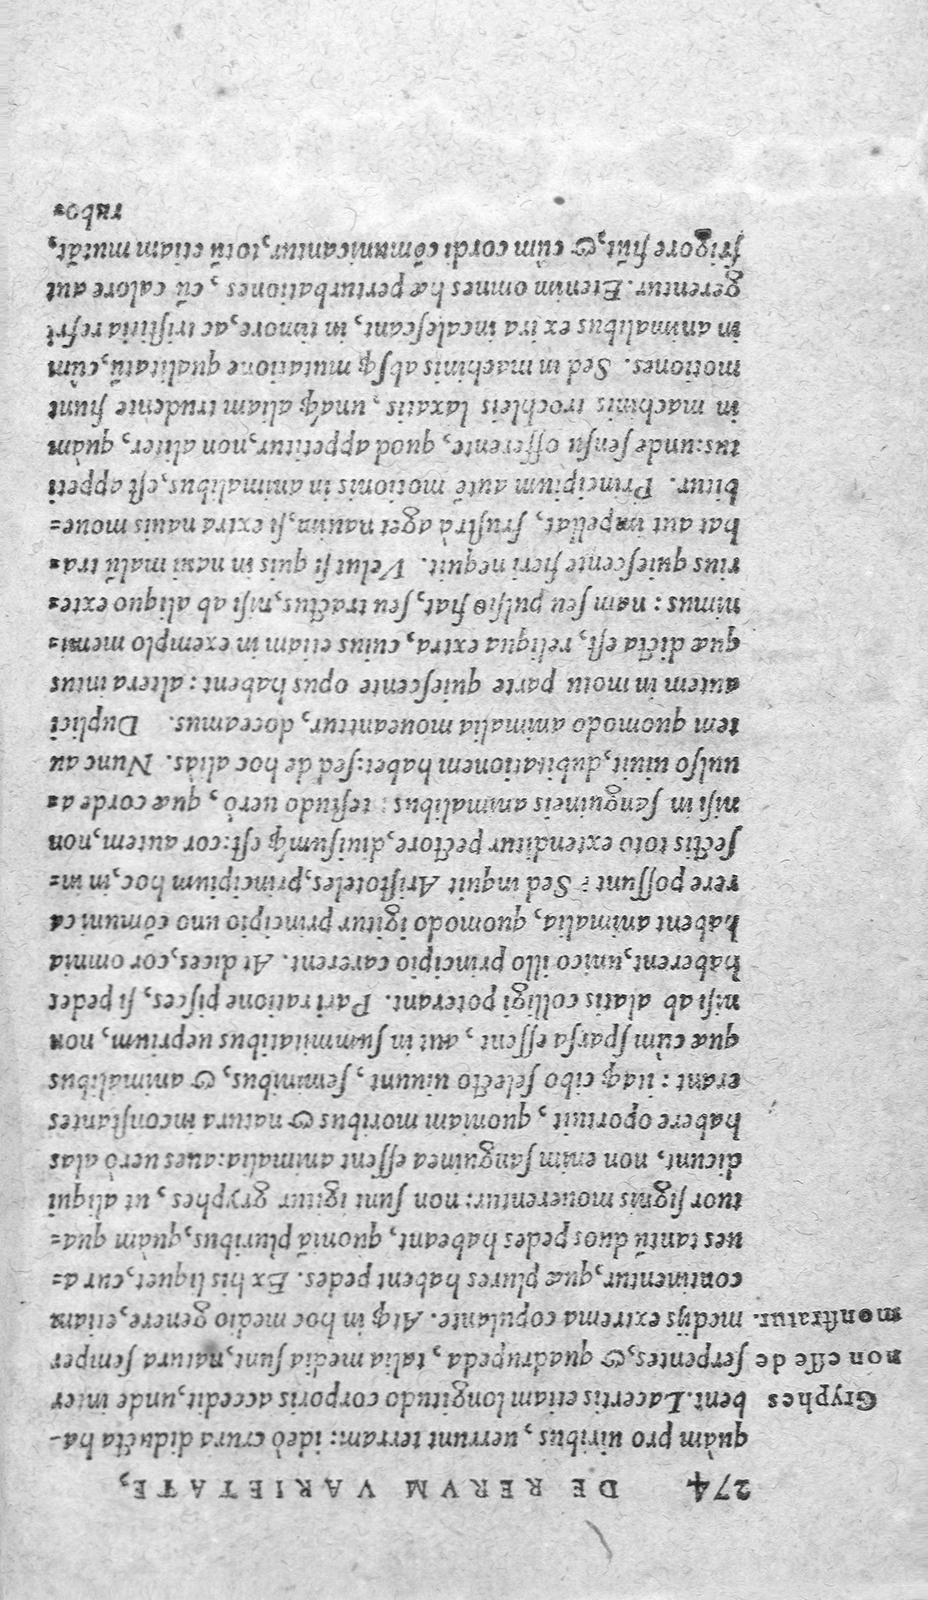 274 DE RERVM VARIETATE,
quàm pro uiribus, uerrunt terram: ideò crura diducta ha-
bent. Lacertis etiam longitudo corporis accedit, unde inter
serpentes, & quadrupeda, talia media sunt, natura semper
medijs extrema copulante. Atq́; in hoc medio genere, etiam
continentur, quæ plures habent pedes. Ex his liquet, cur a=
ues tantũ duos pedes habeant, quoniã pluribus, quàm qua=
tuor signis mouerentur: non sunt igitur gryphes, ut aliqui
dicunt, non enim sanguinea essent animalia: aues uerò alas
habere oportuit, quoniam moribus & natura inconstantes
erant: itaq́; cibo selecto uiuunt, seminibus, & animalibus
quæ cùm sparsa essent, aut in summitatibus ueprium, non
nisi ab alatis colligi poterant. Pari ratione pisces, si pedes
haberent, unico illo principio carerent. At dices, cor omnia
habent animalia, quomodo igitur principio uno cõmunica
rere possunt? Sed inquit Aristoteles, principium hoc, in in=
sectis toto extenditur pectore, diuisumq́; est: cor autem, non
nisi in sanguineis animalibus: testudo uerò, quæ corde a=
uulso uiuit, dubitationem habet: sed de hoc aliàs. Nunc au
tem quomodo animalia moueantur, doceamus. Duplici
autem in motu parte quiescente opus habent: altera intus
quæ dicta est, reliqua extra, cuius etiam in exemplo memi=
nimus: nam seu pulsio fiat, seu tractus, nisi ab aliquo exte=
rius quiescente fieri nequit. Velut si quis in naui malũ tra=
hat aut impellat, frustra aget nauim, si extra nauis moue=
bitur. Principium autẽ motionis in animalibus, est appeti
tus: unde sensu offerente, quod appetitur, non aliter, quàm
in machinis trochleis laxatis, unaq́; aliam trudente fiunt
motiones. Sed in machinis absq́; mutatione qualitatũ, cùm
in animalibus ex ira incalescant, in timore, ac tristitia refri
gerentur. Etenim omnes hæ perturbationes, cũ calore aut
frigore fiũt, & cùm cordi cõmunicantur, totũ etiam mutãt,
rubo=
Gryphes
non esse de
monstratur.